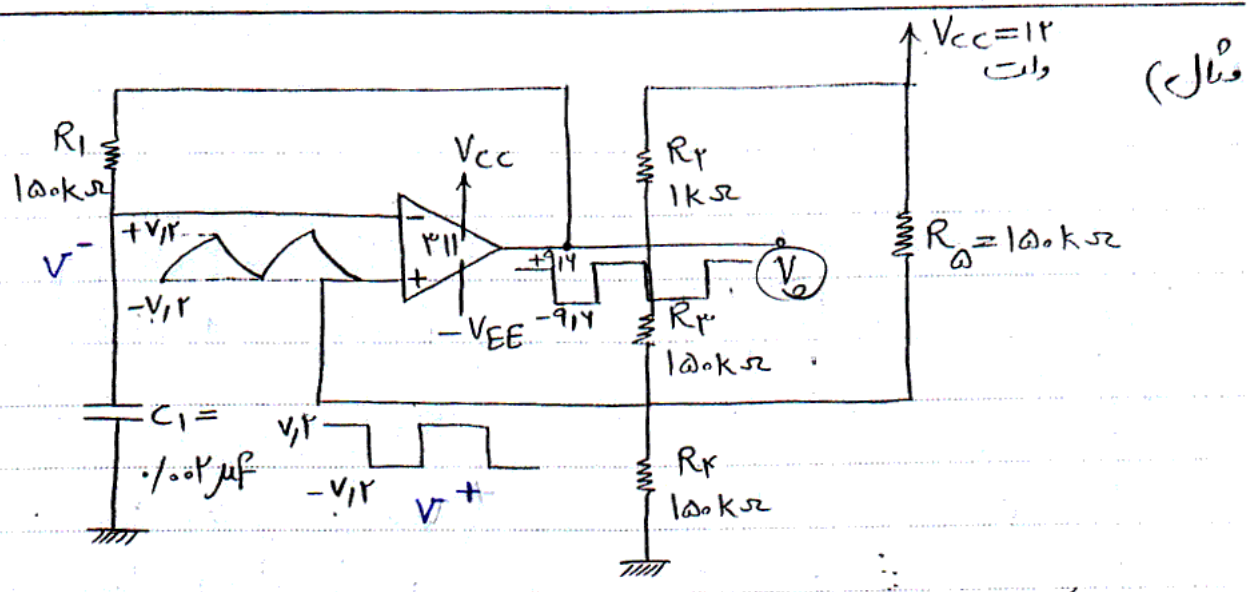 مثال)
VCC=۱۲
ولت
R۱
۱۵۰kΩ
V-
+۷,۲
-۷,۲
VCC
-
۳۱۱
+
-VEE
+۹,۶
-۹,۶
R۲
۱kΩ
R۳
۱۵۰kΩ
Vo
R۵=۱۵۰kΩ
C۱=
۰/۰۰۲μf
۷,۲
-۷,۲
V+
R۴
۱۵۰kΩ